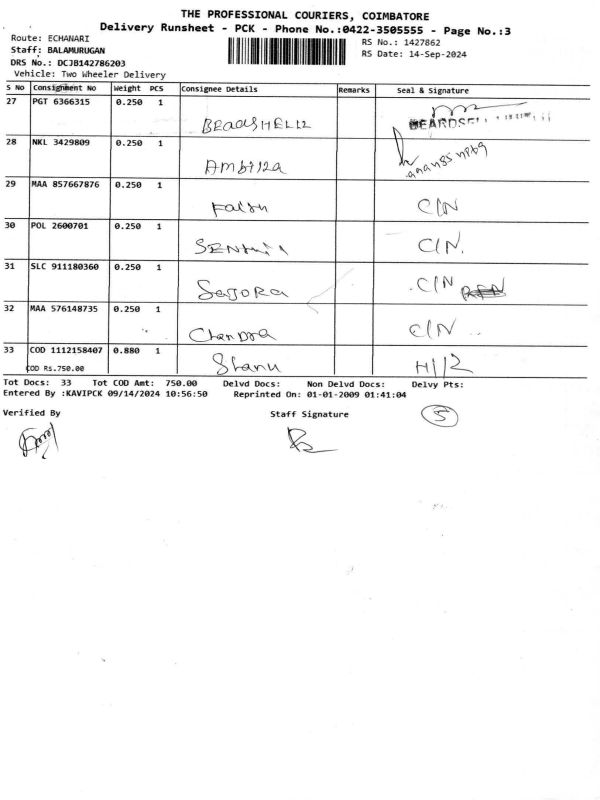 THE PROFESSIONAL COURIERS, COIMBATORE
Delivery Runsheet - PCK - Phone No.:0422-3505555 - Page No.:3
Route: ECHANARI
RS No.: 1427862
Staff: BALAMURUGAN
RS Date: 14-Sep-2024
DRS No.: DCJB142786203
Vehicle: Two Wheeler Delivery
S No Consignment No Weight PCS Consignee Details Remarks Seal & Signature
27 PGT 6366315 0.250 1
BEARDSELL
28 NKL 3429809 0.250 1
29 MAA 857667876 0.250 1
C/N
30 POL 2600701 0.250 1
C/N.
31 SLC 911180360 0.250 1
C/N
32 MAA 576148735 0.250 1
Chandra C/N
33 COD 1112158407 0.880 1
COD Rs.750.00
Tot Docs: 33 Tot COD Amt: 750.00 Delvd Docs: Non Delvd Docs: Delvy Pts:
Entered By :KAVIPCK 09/14/2024 10:56:50 Reprinted On: 01-01-2009 01:41:04
Verified By Staff Signature 5